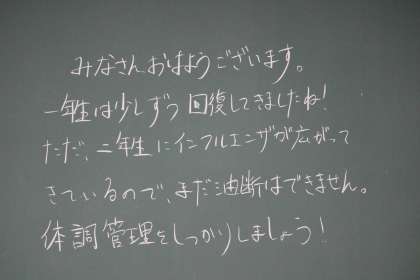 みなさんおはようございます。
一年生は少しずつ回復してきましたね!
ただ、二年生にインフルエンザが広がって
きているので、まだ油断はできません。
体調管理をしっかりしましょう!